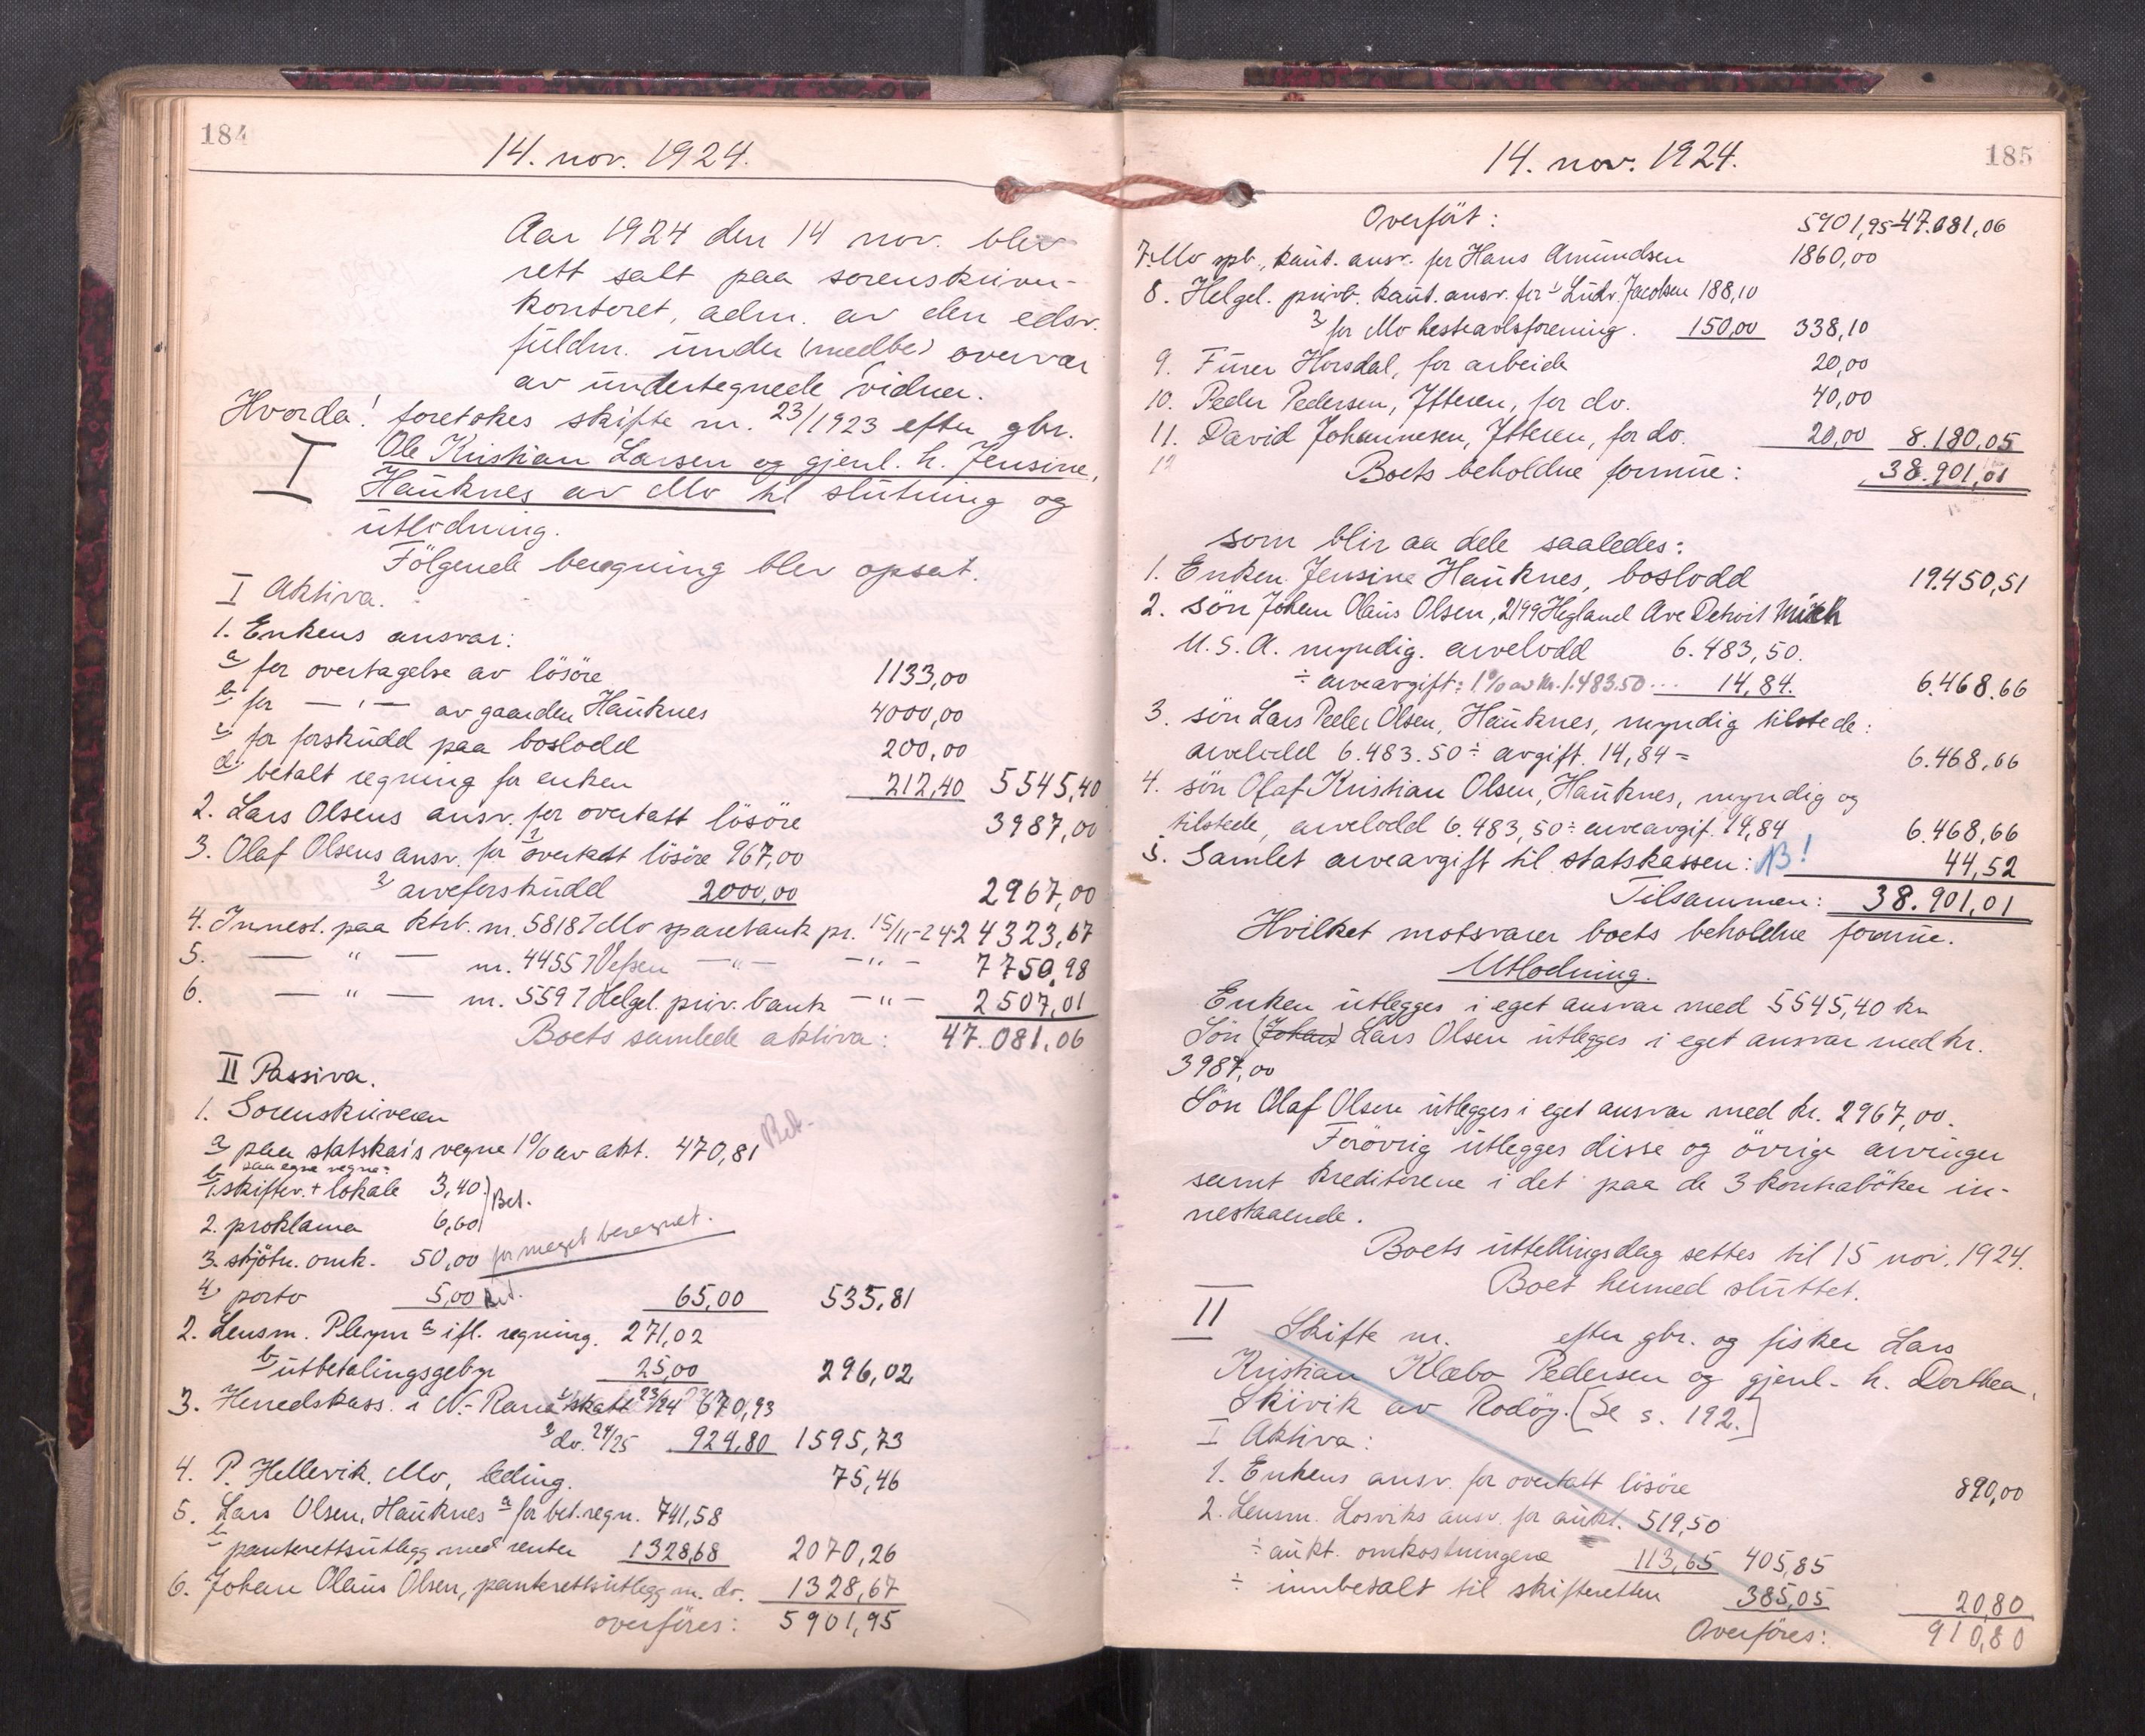 184
14. nov. 1924.
Aar 1924 den 14 nov. blev
rett satt paa sorenskriver-
kontoret, adm. av den edsv.
fuldm. under (medbe) overvær
av undertegnede vidner.
Hvorda! foretokes skifte nr. 23/1923 efter gbr.
I Ole Kristian Larsen og gjenl. h. Jensine,
Hauknes av Mo til slutning og
utlodning.
Følgende beregning blev opsat.
I Aktiva.
1. Enkens ansvar:
a for overtagelse av lösöre 1133,00
b for — " — av gaarden Hauknes 4000,00
c for forskudd paa boslodd 200,00
d betalt regning for enken 212,40 5545,40
2. Lars Olsens ansv. for overtatt lösöre 3987,00
3. Olaf Olsens ansv. for 1 overtatt lösöre 967,00
2 arveforskudd 2000,00 2967,00
4. Innest. paa ktrb. nr. 58187 Mo sparebank pr. 15/11-24 24323,67
5. — " — nr. 4455 Vefsen — " — — " — 7750,98
6. — " — nr. 5597 Helgel. priv. bank — " — 2507,01
Boets samlede aktiva: 47.081,06
II Passiva.
1. Sorenskriveren
a paa statskas's vegne 1% av akt. 470,81 Bet.
b paa egne vegne:
1. skifterv. + lokale 3,40 Bet.
2. proklama 6,60
3. skjötn. omk. 50,00 for meget beregnet.
4. porto 5,00 Bet. 65,00 535,81
2. Lensm. Pleym a ifl. regning. 271,02
b utbetalingsgebyr 25,00 296,02
3. Herredskass. i N.-Rana 1 skatt 23/24 670,93
2 do. 24/25 924,80 1595,73
4. P. Hellevik, Mo, leding. 75,46
5. Lars Olsen, Hauknes a for bet. regn. 741,58
b panterettsutlegg med renter 1328,68 2070,26
6. Johan Olaus Olsen, panterettsutlegg m. do. 1328,67
overføres: 5901,95
14. nov. 1924.
185
Overfört: 5901,95 47.081,06
7. Mo spb., kaut. ansv. for Hans Amundsen 1860,00
8. Helgel. privb. kaut. ansv. for 1 Ludv. Jacobsen 188,10
2 for Mo hesteavlsforening. 150,00 338,10
9. Furer Horsdal, for arbeide 20,00
10. Peder Pedersen, Ytteren, for do. 40,00
11. David Johannesen, Ytteren, for do. 20,00 8.180,05
12 Boets beholdne formue: 38.901,01
som blir aa dele saaledes:
1. Enken Jensine Hauknes, boslodd 19.450,51
2. sön Johan Olaus Olsen, 2199 Hegland Ave Detroit Mich
U.S.A. myndig. arvelodd 6.483,50.
÷ arveavgift: 1% av kr. 1.483.50 ... 14,84. 6.468.66
3. sön Lars Peder Olsen, Hauknes, myndig tilstede:
arvelodd 6.483.50 ÷ avgift. 14,84 = 6.468,66
4. sön Olaf Kristian Olsen, Hauknes, myndig og
tilstede, arvelodd 6.483,50 ÷ arveavgif. 14,84 6.468,66
5. Samlet arveavgift til statskassen: NB! 44,52
Tilsammen: 38.901,01
Hvilket motsvarer boets beholdne formue.
Utlodning.
Enken utlegges i eget ansvar med 5545,40 kr
Sön (Johan) Lars Olsen utlegges i eget ansvar med kr.
3987,00
Sön Olaf Olsen utlegges i eget ansvar med kr. 2967,00.
Forövrig utlegges disse og övrige arvinger
samt kreditorene i det paa de 3 kontraböker in-
nestaaende.
Boets uttellingsdag settes til 15 nov. 1924.
Boet hermed sluttet.
II Skifte nr. efter gbr. og fisker Lars
Kristian Klæbo Pedersen og gjenl. h. Dorthea,
Skivik av Rodöy. [Se s. 192.]
I Aktiva:
1. Enkens ansv. for overtatt lösöre 890,00
2. Lensm. Losviks ansv. for aukt. 519,50
÷ aukt. omkostningene 113,65 405,85
÷ innbetalt til skifteretten 385,05 20,80
Overføres: 910,80